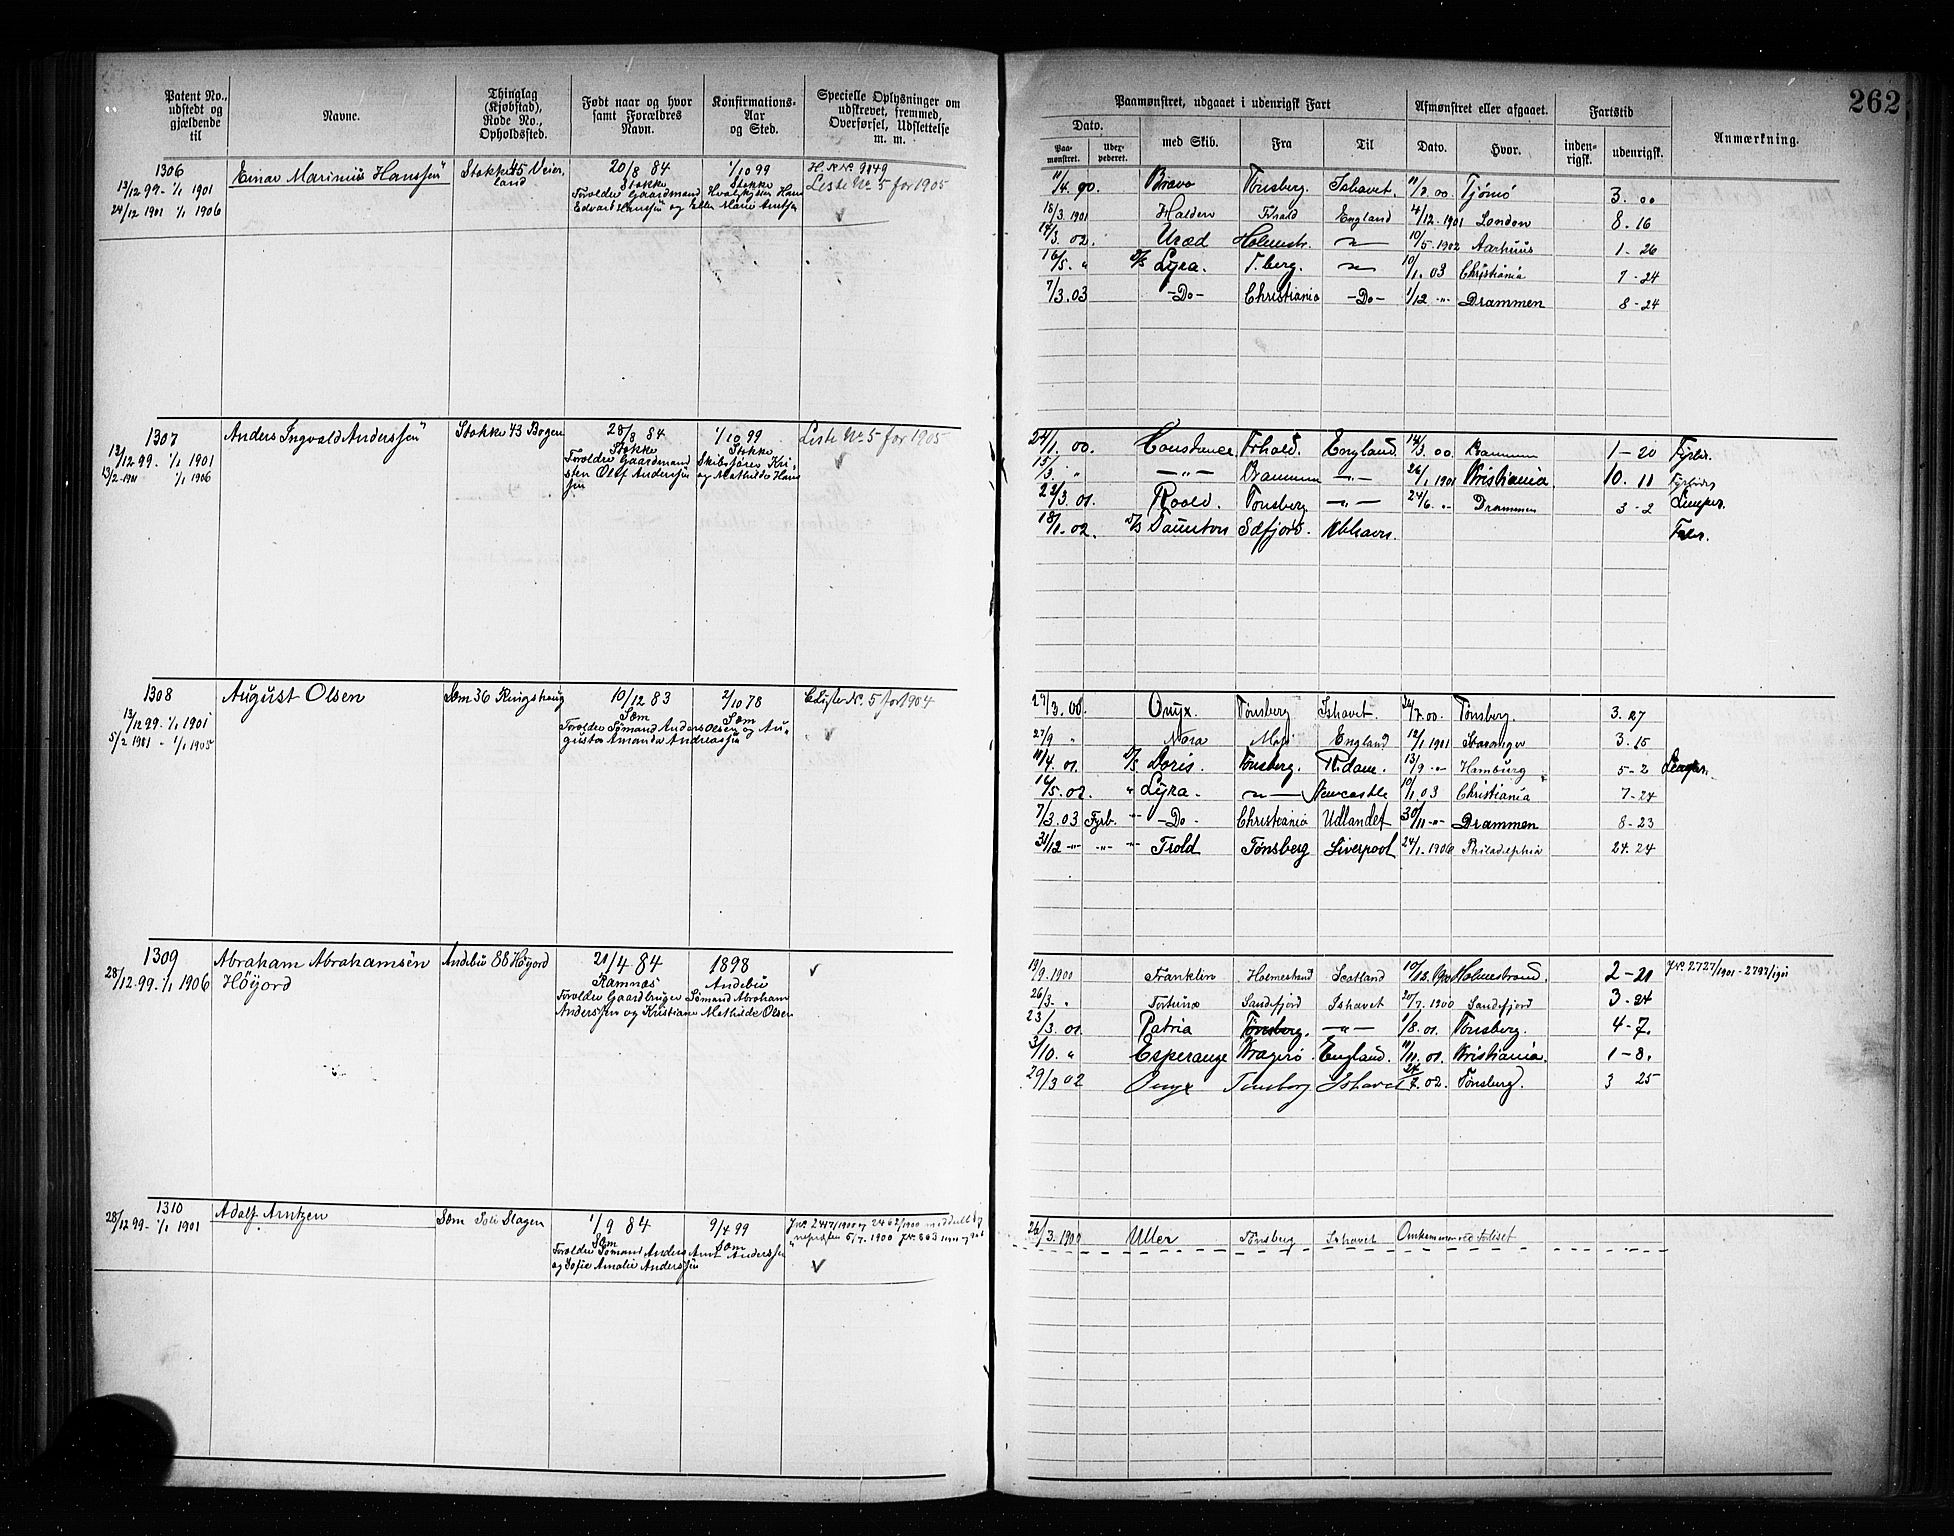 262
Patent No., udstedt og gjældende til
Navne.
Thinglag (Kjøbstad), Rode No., Opholdssted.
Født naar og hvor samt Forældres Navn.
Konfirmations-Aar og Sted.
Specielle Oplysninger om udskrevet, fremmed, Overførsel, Udslettelse m. m.
Paamønstret, udgaaet i udenrigsk Fart
Afmønstret eller afgaaet.
Fartstid
Anmærkning.
Dato.
Paa-mønstret.
Udex-pederet.
med Skib.
Fra
Til
Dato.
Hvor.
inden-rigsk.
udenrigsk.
1306
13/12 99 - 1/1 1901
24/12 1901 1/1 1906
Einar Marinius Hanssen
Stokke 45 Veierland
20/8 84
Stokke
1/10 99
Stokke
Forældre Gaardmand Hvalskytter Hans
Edvart Hanssen og Ellen Marie Arntzen
H. R. No. 9849
Liste No. 5 for 1905
11/4. 90. Bravo Tønsberg. Ishavet. 11/8. 00. Tjømø 3. 00
18/3. 1901 Halden Fhald England 4/12. 1901 London 8. 16
14/3. 02. Uræd Holmestr. 10/5. 1902 Aarhuus 1 - 26
16/5. " D/S Lyra. T.berg. 10/1. 03 Christiania 7 - 24
7/3. 03 -Do- Christiania -Do- 1/12 -"- Drammen 8 - 24
1307
13/12 99. - 1/1 1901
13/2 1901 1/1 1906
Anders Ingvald Anderssen
Stokke 43 Bogen
28/8 84
Stokke
1/10 99
Stokke
Forældre Gaardmand Skibsfører Kri-
sten Olef Anderssen og Mathilde Hans
sen
Liste No. 5 for 1905
24/1. 00. Constance. Frhald. England. 14/3. 00. Drammen 1 - 20 Fyrbr.
15/3. " -"- Drammen -"- 26/1 1901 Kristiania. 10. 11 Fyrbøder
22/3. 01. Roald. Tønsberg -"- 24/6. -"- Drammen 3 - 2 Lemper.
18/1. 02. D/S Taunton Sdfjord. Kbhavn.
1308
13/12 99. 1/1 1901
5/2 1901 - 1/1 1905
August Olsen
Sem 36 Ringshaug
10/12 83
Sem
2/10 78
Sem
Forældre Sømand Anders Olsen og Au-
gusta Amanda Andreassen
Liste No. 5 for 1904
27/3. 00. Onyx. Tønsberg Ishavet. 24/7. 00. Tønsberg. 3. 27
27/9 " Nora Moss England 12/1 1901 Stavanger 3. 15
11/4. 01. D/S Doris. Tønsberg. R.dam. 13/9 -"- Hamburg 5 - 2 Lemper.
16/5. 02. " Lyra. Newcastle 10/1 03 Christiania 7 - 24
7/3. 03 Fyrb. -"- -Do- Christiania Udlandet 30/11 -"- Drammen 8 - 23
31/12 -"- -"- -"- Trold Tønsberg Liverpool 24/1. 1906 Philadelphia 24. 24
1309
28/12 99. 1/1 1906
Abraham Abrahamsen
Höyord
Andebu 88 Höyord
21/4 84
Ramnæs
1898
Andebu
Forældre Gaardbruger Sømand Abraham
Anderssen og Kristiane Mathilde Olsen
J.No. 2727/1901 - 2792/1911
19/9. 1900 Franklin Holmestrand Scotland 10/12. 1900 Holmestrand. 2 - 21
26/3. " Fortuna Sandefjord Ishavet 20/7. 1900 Sandefjord 3. 24
23/3. 01. Patria Tønsberg. -"- 1/8. 01. Tønsberg. 4 - 7.
3/10. " Esperange Kragerø England. 11/11. 01. Kristiania. 1 - 8.
29/3 02 Onyx Tønsberg Ishavet 24/7. 02. Tønsberg. 3 25
1310
28/12 99 - 1/1 1901
Adolf Arntzen
Sem Slagen
1/9 84
Sem
9/4 99
Sem
Forældre Sømand Anders Arnt Anderssen
og Sofie Amalie Anderssen
J.No. 2417/1900 og 2462/1900
26/3. 1900 Uller Tønsberg Ishavet Omkommen ved Forliset